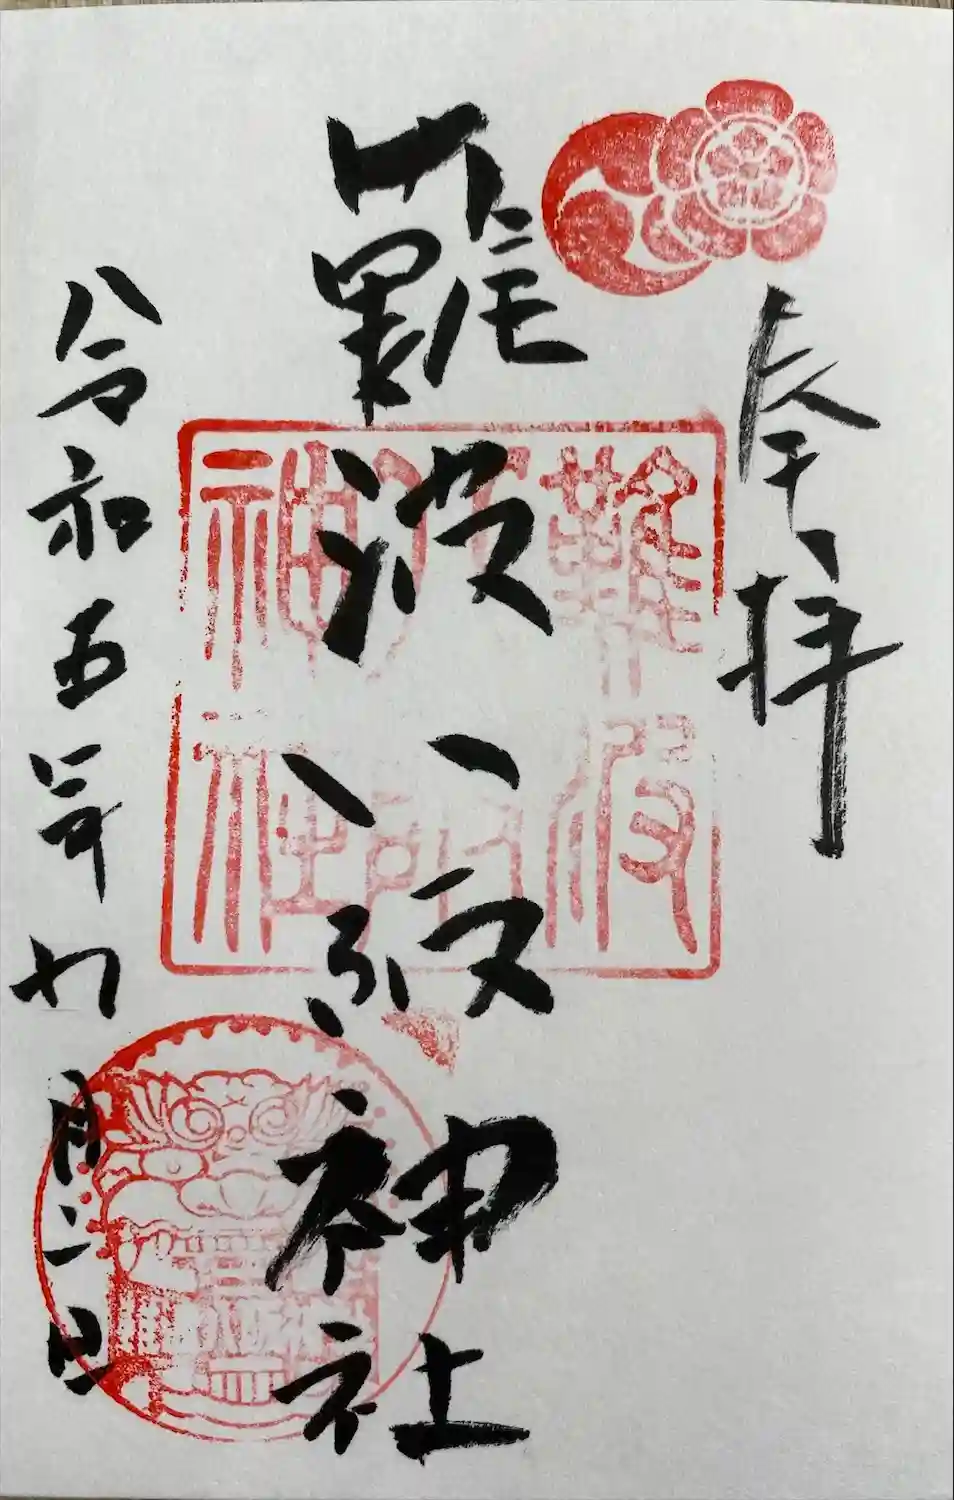 奉拝
難波八阪神社
令和五年九月二日
難波
八阪
神社